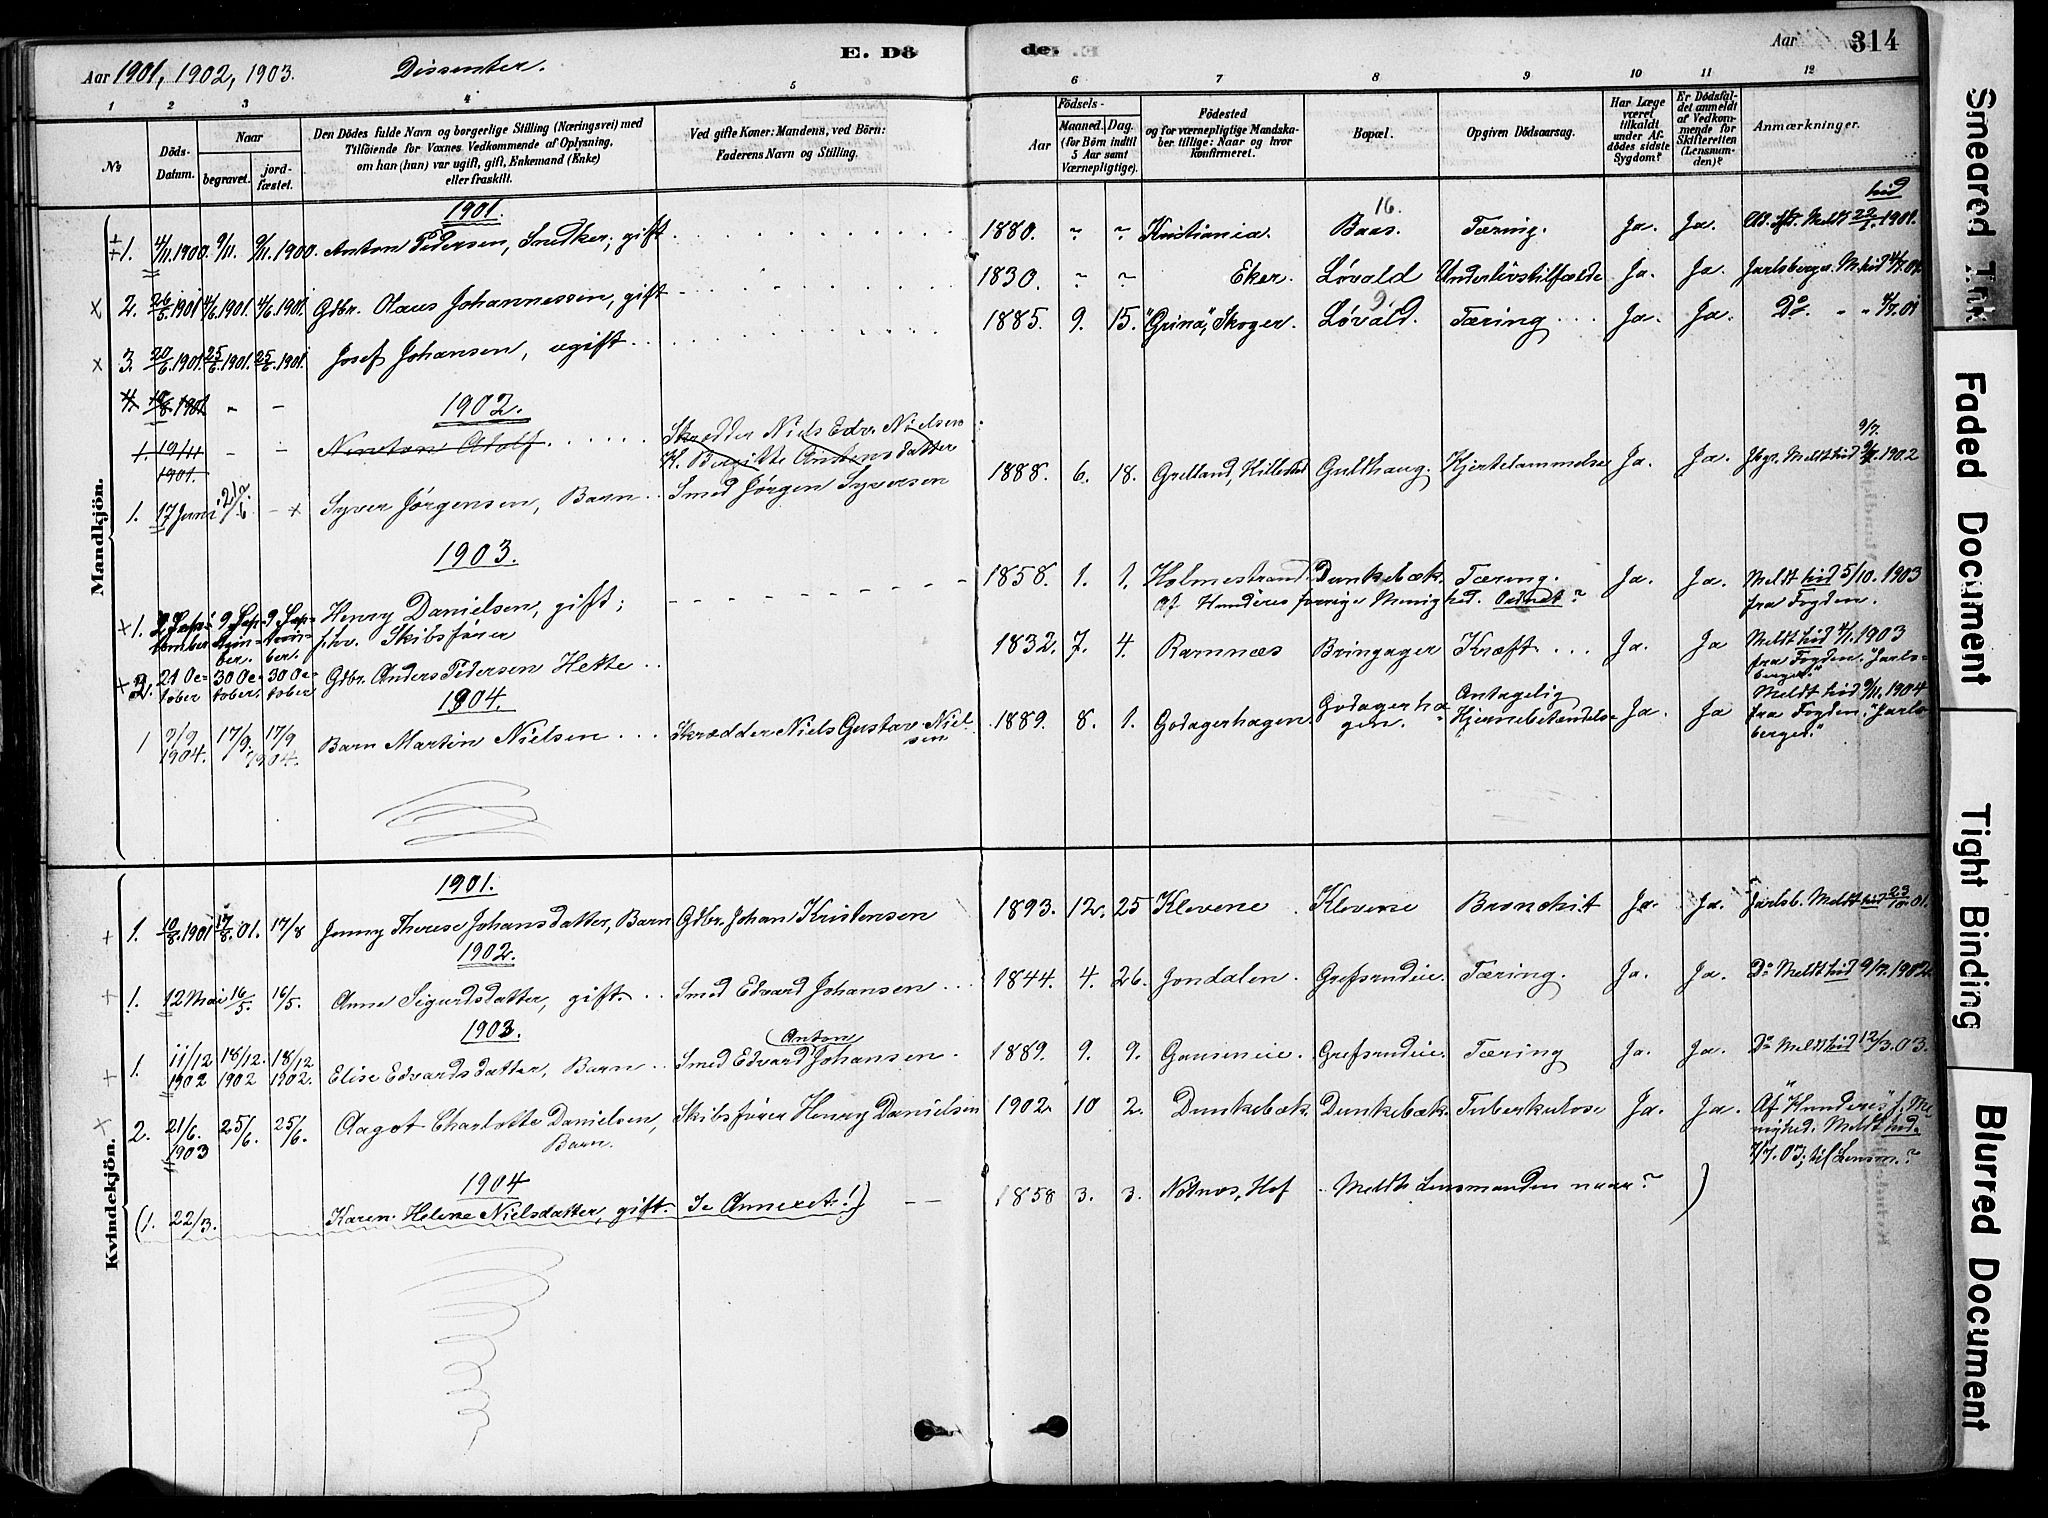 Aar 1901, 1902, 1903.
Dissenter.
E. Dö
de.
Aar
314
1 2 3 4 5 6 7 8 9 10 11 12
No.
Döds-Datum.
Naar
begravet.
jord-fæstet.
Den Dödes fulde Navn og borgerlige Stilling (Næringsvei) med
Tilföiende for Voxnes Vedkommende af Oplysning,
om han (hun) var ugift, gift, Enkemand (Enke)
eller fraskilt.
Ved gifte Koner: Mandens, ved Börn:
Faderens Navn og Stilling.
Födsels-
Aar
Maaned. Dag.
(for Börn indtil
5 Aar samt
Værnepligtige).
Födested
og for værnepligtige Mandska-
ber tillige: Naar og hvor
konfirmeret.
Bopæl.
Opgiven Dödsaarsag.
Har Læge
været
tilkaldt
under Af-
dödes sidste
Sygdom?
Er Dödsfal-
det anmeldt
af Vedkom-
mende for
Skifteretten
(Lensman-
den)?
Anmærkninger.
Mandkjön.
1901.
1. 4/11.1900. 9/11. 9/11.1900. Anton Pedersen, Snedker, gift 1880. Kristiania. Baas. 16. Tæring. Ja. Ja. Meldt hid 22/1.1901.
2. 26/5.1901 4/6.1901. 4/6.1901. Gdbr. Olaus Johannessen, gift 1830. Eker. Løvald Underlivstilfælde Ja. Ja. Jarlsberger. M. hid 4/7.01.
3. 20/6.1901. 25/6.1901. 25/6.1901. Josef Johansen, ugift 1885. 9. 15. "Grina", Skoger. Løvald. 9 Tæring Ja. Ja. Do. " " 4/7.01
4.
1902.
1. 19/11 1901. - - Newton Adolf Skrædder Niels Edv. Nielsen
H. Birgitte Anstensdatter
1. 17 Juni 21/6. - Syver Jørgensen, Barn Smed Jørgen Syversen 1888. 6. 18. Grelland, Hillestad Gulhaug. Kjertelammelse Ja. Ja. Meldt hid 9/7.1902
1903.
1. 2 September 9 September. 9 September. Henry Danielsen, gift;
fhv. Skibsfører 1858. 1. 1. Holmestrand. Dunkebæk. Tæring. Ja. Ja. Meldt hid 5/10.1903
fra Fogden.
Af Hunderes forrige Menighed.
2. 21 October 30 October. 30 October Gdbr. Anders Pedersen Hette 1832. 7. 4. Ramnæs Bringager Kræft Ja. Ja Meldt hid 4/1.1903
fra Fogden. "Jarls-
berger."
1904.
1 9/9 1904. 17/9. 17/9 1904. Barn Martin Nielsen Skrædder Niels Gustav Niel-
sen 1889. 8. 1. Godagerhagen. Godagerha-
gen. Antagelig
Hjernebetændelse Ja. Ja Meldt hid 9/11.1904
fra Fogden. "Jarls-
berger."
Kvindekjön.
1901.
1. 10/8.1901 17/8.01. 17/8 Jenny Therese Johansdatter, Barn Gdbr. Johan Kristensen 1893. 12. 25 Klevene Klevene Bronchit Ja. Ja. Jarlsb. Meldt hid 23/10.01.
1902.
1. 12 Mai 16/5. 16/5. Anne Sigurdsdatter, gift Smed Edvard Johansen 1844. 4. 26. Jondalen. Grefsrudeie. Tæring. Ja. Ja. Do Meldt hid 9/7.1902.
1903.
1. 11/12 1902 18/12. 1902 18/12 1902. Elise Edvardsdatter, Barn Smed Edvard (Anton) Johansen. 1889. 9. 9. Gauseneie. Grefsrudeie. Tæring Ja. Ja. Do Meldt hid 12/3.03.
2. 21/6. 1903 25/6. 25/6. Aagot Charlotte Danielsen,
Barn. Skibsfører Henry Danielsen 1902. 10 2. Dunkebæk Dunkebæk. Tuberkulose Ja. Ja. Af "Hunderes" f. Me-
nighed. Meldt hid
7/7.03; til Lensm.?
1904
(1. 22/3. Karen Helene Nielsdatter, gift. Se Annexet!) 1858 3. 3. Hof Meldt Lensmanden naar? )
Smeared Ink
Faded Document
Tight Binding
Blurred Document